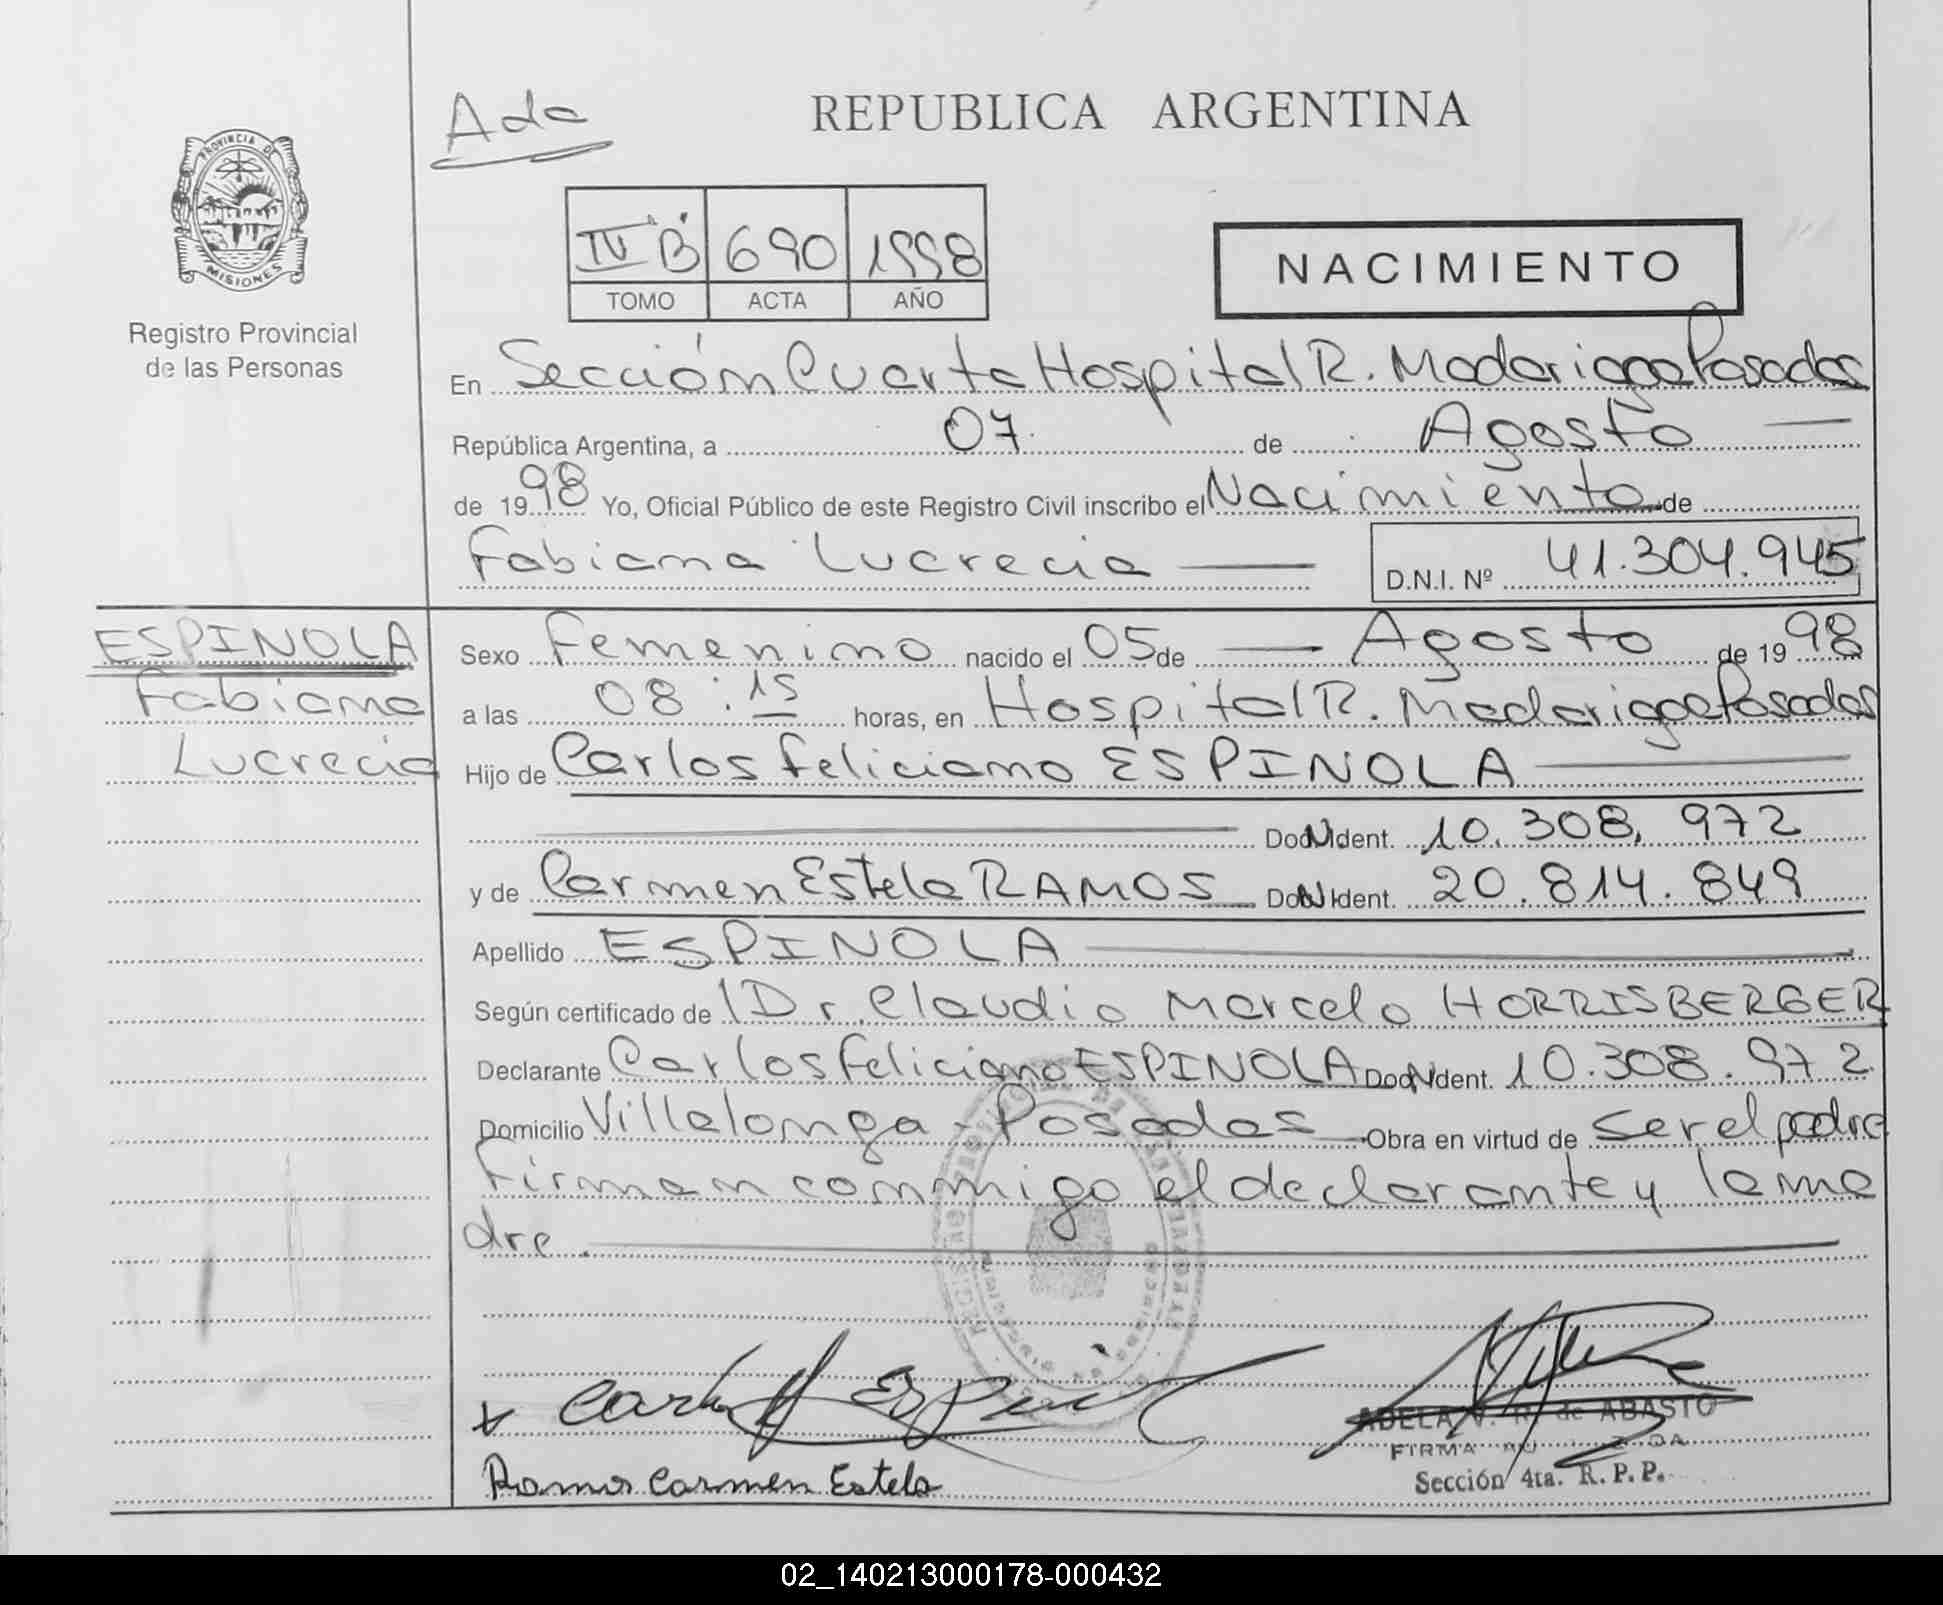 Ada
REPUBLICA ARGENTINA
PROVINCIA DE
MISIONES
Registro Provincial
de las Personas
IV "B" 690 1998
TOMO ACTA AÑO
NACIMIENTO
En Sección Cuarta Hospital R. Madariaga Posadas
República Argentina, a 07 de Agosto
de 1998 Yo, Oficial Público de este Registro Civil inscribo el Nacimiento de
Fabiana Lucrecia D.N.I. Nº 41.304.945
ESPINOLA
Fabiana
Lucrecia
Sexo Femenino nacido el 05 de Agosto de 1998
a las 08:15 horas, en Hospital R. Madariaga Posadas
Hijo de Carlos Feliciano ESPINOLA
Ident. 10.308.972
y de Carmen Estela RAMOS Ident. 20.814.849
Apellido ESPINOLA
Según certificado de Dr. Claudio Marcelo HORRISBERGER
Declarante Carlos Feliciano ESPINOLA Ident. 10.308.972
Domicilio Villalonga - Posadas Obra en virtud de ser el padre
Firman conmigo el declarante y la ma
dre.
Ramos Carmen Estela
ADELA V. R. de ABASTO
FIRMA
Sección 4ta. R. P. P.
02_140213000178-000432